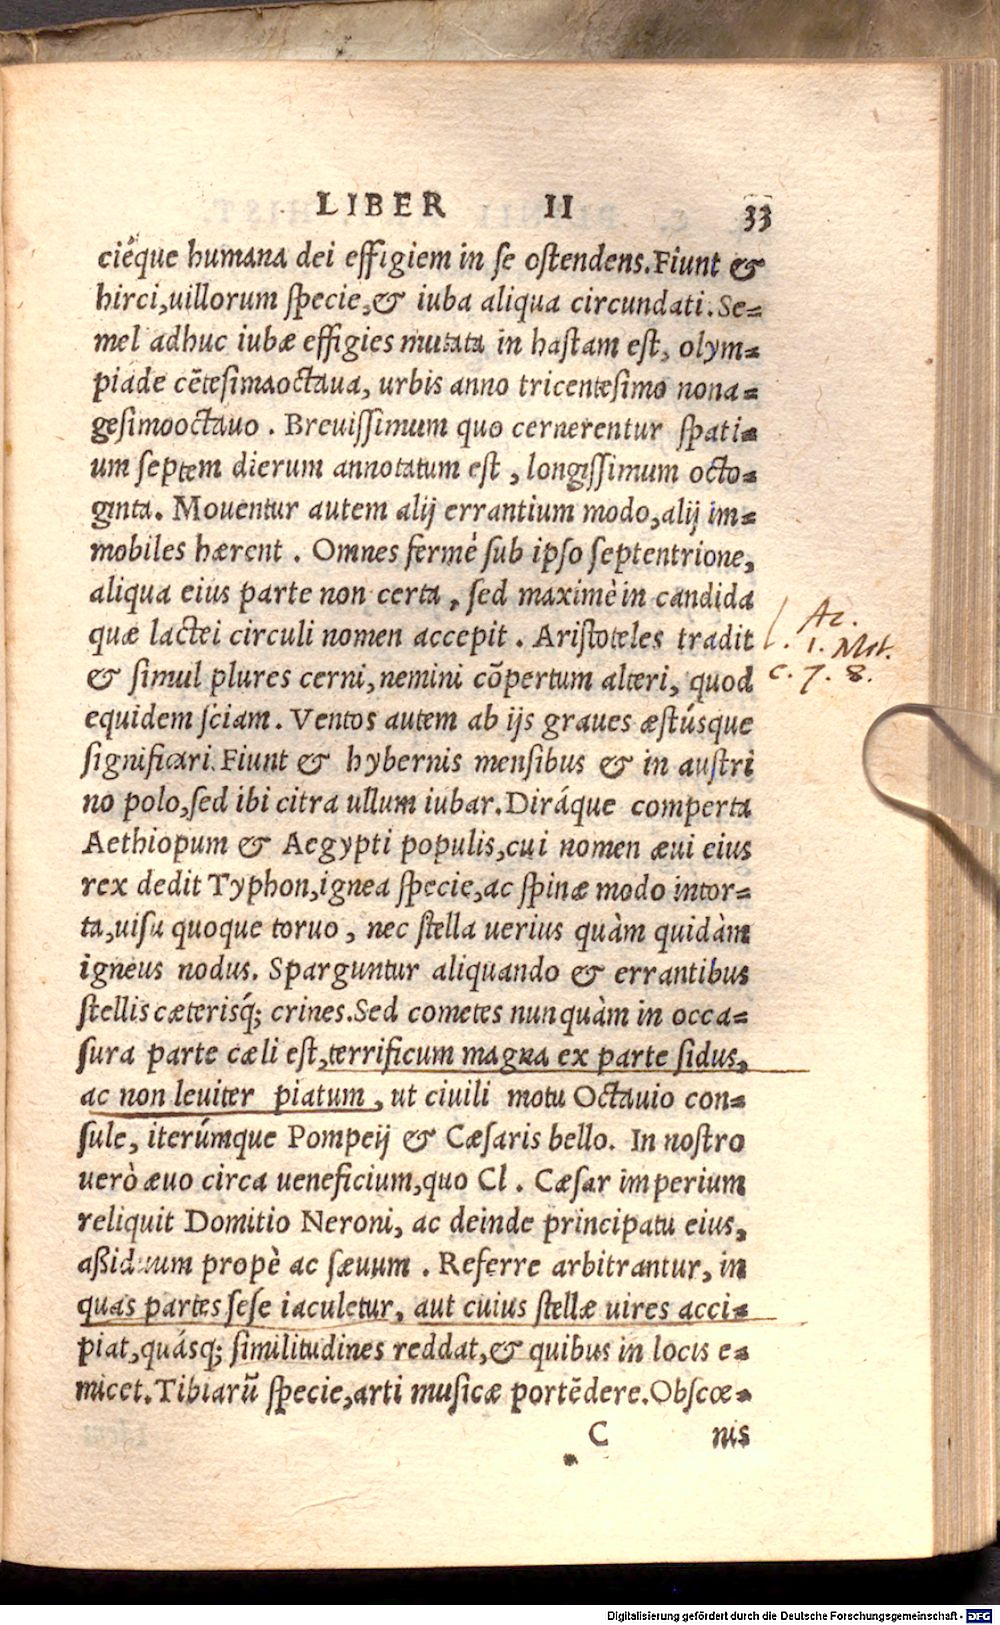 LIBER II 33
ciéque humana dei effigiem in se ostendens. Fiunt &
hirci, uillorum specie, & iuba aliqua circundati. Se=
mel adhuc iubæ effigies mutata in hastam est, olym=
piade cētesimaoctaua, urbis anno tricentesimo nona=
gesimooctauo. Breuissimum quo cernerentur spati=
um septem dierum annotatum est, longissimum octo=
ginta. Mouentur autem alij errantium modo, alij im=
mobiles hærent. Omnes fermè sub ipso septentrione,
aliqua eius parte non certa, sed maximè in candida
quæ lactei circuli nomen accepit. Aristoteles tradit
& simul plures cerni, nemini cōpertum alteri, quod
equidem sciam. Ventos autem ab ijs graues æstúsque
significari. Fiunt & hybernis mensibus & in austri
no polo, sed ibi citra ullum iubar. Diráque comperta
Aethiopum & Aegypti populis, cui nomen æui eius
rex dedit Typhon, ignea specie, ac spinæ modo intor=
ta, uisu quoque toruo, nec stella uerius quàm quidàm
igneus nodus. Sparguntur aliquando & errantibus
stellis cæterisq́; crines. Sed cometes nunquàm in occa=
sura parte cæli est, terrificum magna ex parte sidus,
ac non leuiter piatum, ut ciuili motu Octauio con=
sule, iterúmque Pompeij & Cæsaris bello. In nostro
uerò æuo circa ueneficium, quo Cl. Cæsar imperium
reliquit Domitio Neroni, ac deinde principatu eius,
aßiduum propè ac sæuum. Referre arbitrantur, in
quas partes sese iaculetur, aut cuius stellæ uires acci=
piat, quásq; similitudines reddat, & quibus in locis e=
micet. Tibiarū specie, arti musicæ portēdere. Obscœ=
C nis
Ar.
1. Met.
c. 7. 8.
Digitalisierung gefördert durch die Deutsche Forschungsgemeinschaft - DFG